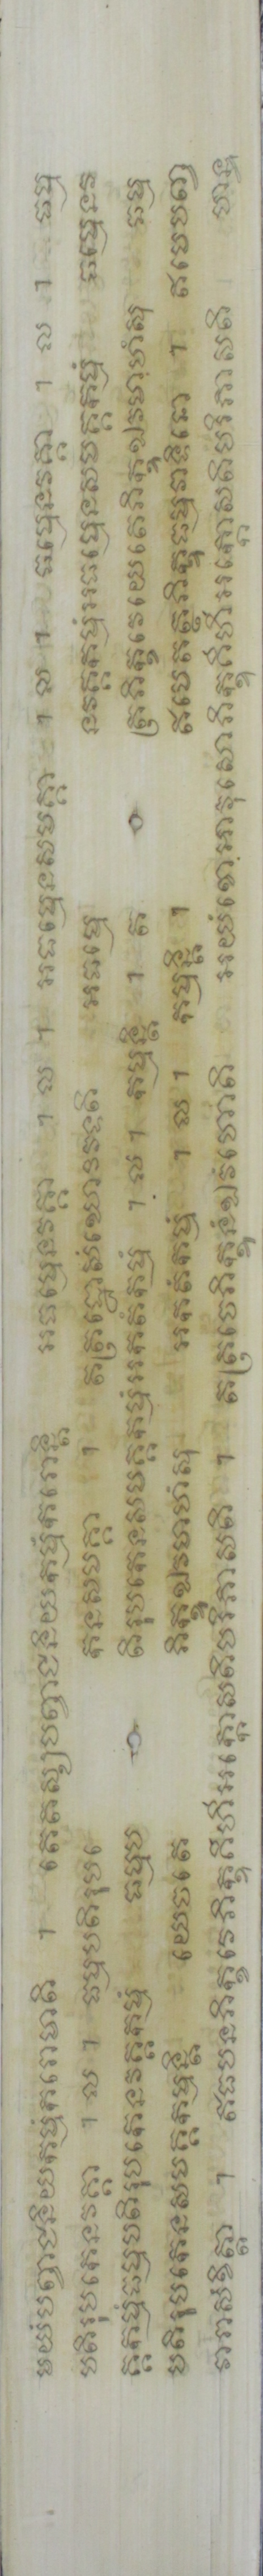 មយំបព្វាជនិយកម្មំករោមាតិ ។ តេតស្សបព្វាជនិយកម្មំករោន្តិ អធម្មេនវគ្គា ។ ល ។ អធម្មេនសមគ្គា ។ ល ។ ធម្មេនវគ្គា ។ ល ។ ធម្ម
បតិរុបកេនវគ្គា ។ ល ។ ធម្មបតិរុបកេនសមគ្គា ។ តត្រដ្ឋោសំឃោវិវទតិ អធម្មេនវគ្គកម្មំអធម្មេនសមគ្គកម្មំ ធម្មេនវ
គ្គកម្មំធម្មបតិរុបកេនវគ្គកម្មំ ធម្មបតិរុបកេនសមគ្គកម្មំអកតំកម្មំ ។ ល ។ កម្មន្តិ ។ តត្រភិក្ខវេយេតេភិក្ខូឯវមាហំសុ ធម្ម
បតិរុបកេនសមគ្គកម្មន្តិ យេចតេភិក្ខូឯវមាហំសុ អកតំកម្មំ ។ ល ។ កម្មន្តិ ។ ឥមេតត្ថភិក្ខូធម្មវាទិនោ ។ ឥមេបញ្ច
វារាសំខិត្តា ។ ឥធបនភិក្ខវេភិក្ខុគិហីអក្កោសតិបរិភាសតិ ។ តត្រចេភិក្ខូនំឯវំហោតិ អយំខោអាវុសោភិក្ខុគិហីអក្កោសតិបរិភាសតិ ហន្ទ